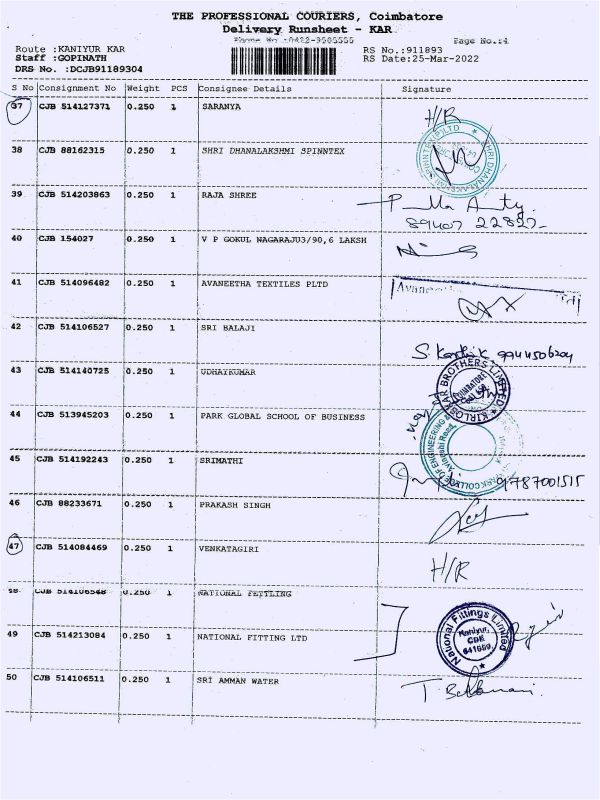 THE PROFESSIONAL COURIERS, Coimbatore
Delivery Runsheet - KAR
Page No.:4
Route :KANIYUR KAR
RS No.:911893
Staff :GOPINATH
RS Date:25-Mar-2022
DRS No. :DCJB91189304
S No Consignment No Weight PCS Consignee Details Signature
37 CJB 514127371 0.250 1 SARANYA H/R
38 CJB 88162315 0.250 1 SHRI DHANALAKSHMI SPINNTEX
39 CJB 514203863 0.250 1 RAJA SHREE
40 CJB 154027 0.250 1 V P GOKUL NAGARAJU3/90,6 LAKSH
41 CJB 514096482 0.250 1 AVANEETHA TEXTILES PLTD
42 CJB 514106527 0.250 1 SRI BALAJI
S. Karthik 9944506204
43 CJB 514140725 0.250 1 UDHAYKUMAR
KIRLOSKAR BROTHERS LIMITED
COIMBATORE
44 CJB 513945203 0.250 1 PARK GLOBAL SCHOOL OF BUSINESS
PARK COLLEGE OF ENGINEERING
Avinashi Road,
45 CJB 514192243 0.250 1 SRIMATHI
9787001515
46 CJB 88233671 0.250 1 PRAKASH SINGH
47 CJB 514084469 0.250 1 VENKATAGIRI H/R
48 CJB 514106548 0.250 1 NATIONAL FETTLING
49 CJB 514213084 0.250 1 NATIONAL FITTING LTD
National Fittings Limited
Kaniyur,
CBE
641659
50 CJB 514106511 0.250 1 SRI AMMAN WATER